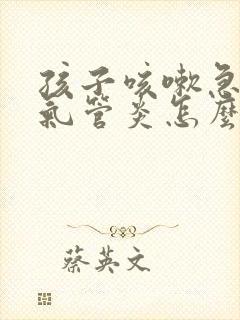 孩子咳嗽急
氣管炎怎麼
蔡英文